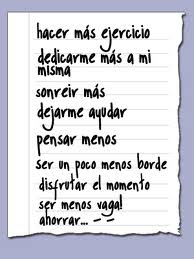 hacer más ejercicio
dedicarme más a mi
misma
sonreir más
dejarme ayudar
pensar menos
ser un poco menos borde
disfrutar el momento
ser menos vaga!
ahorrar... - -